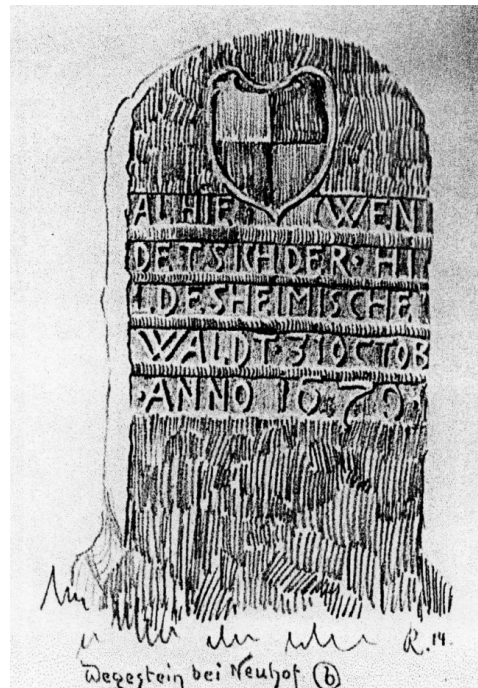 ALHIE WEN
DET SICH DER · HI
LDESHEIMISCHE
WALDT · 31 OCTOB
· ANNO 1679 ·
R. 14.
Wegestein bei Neuhof (b)